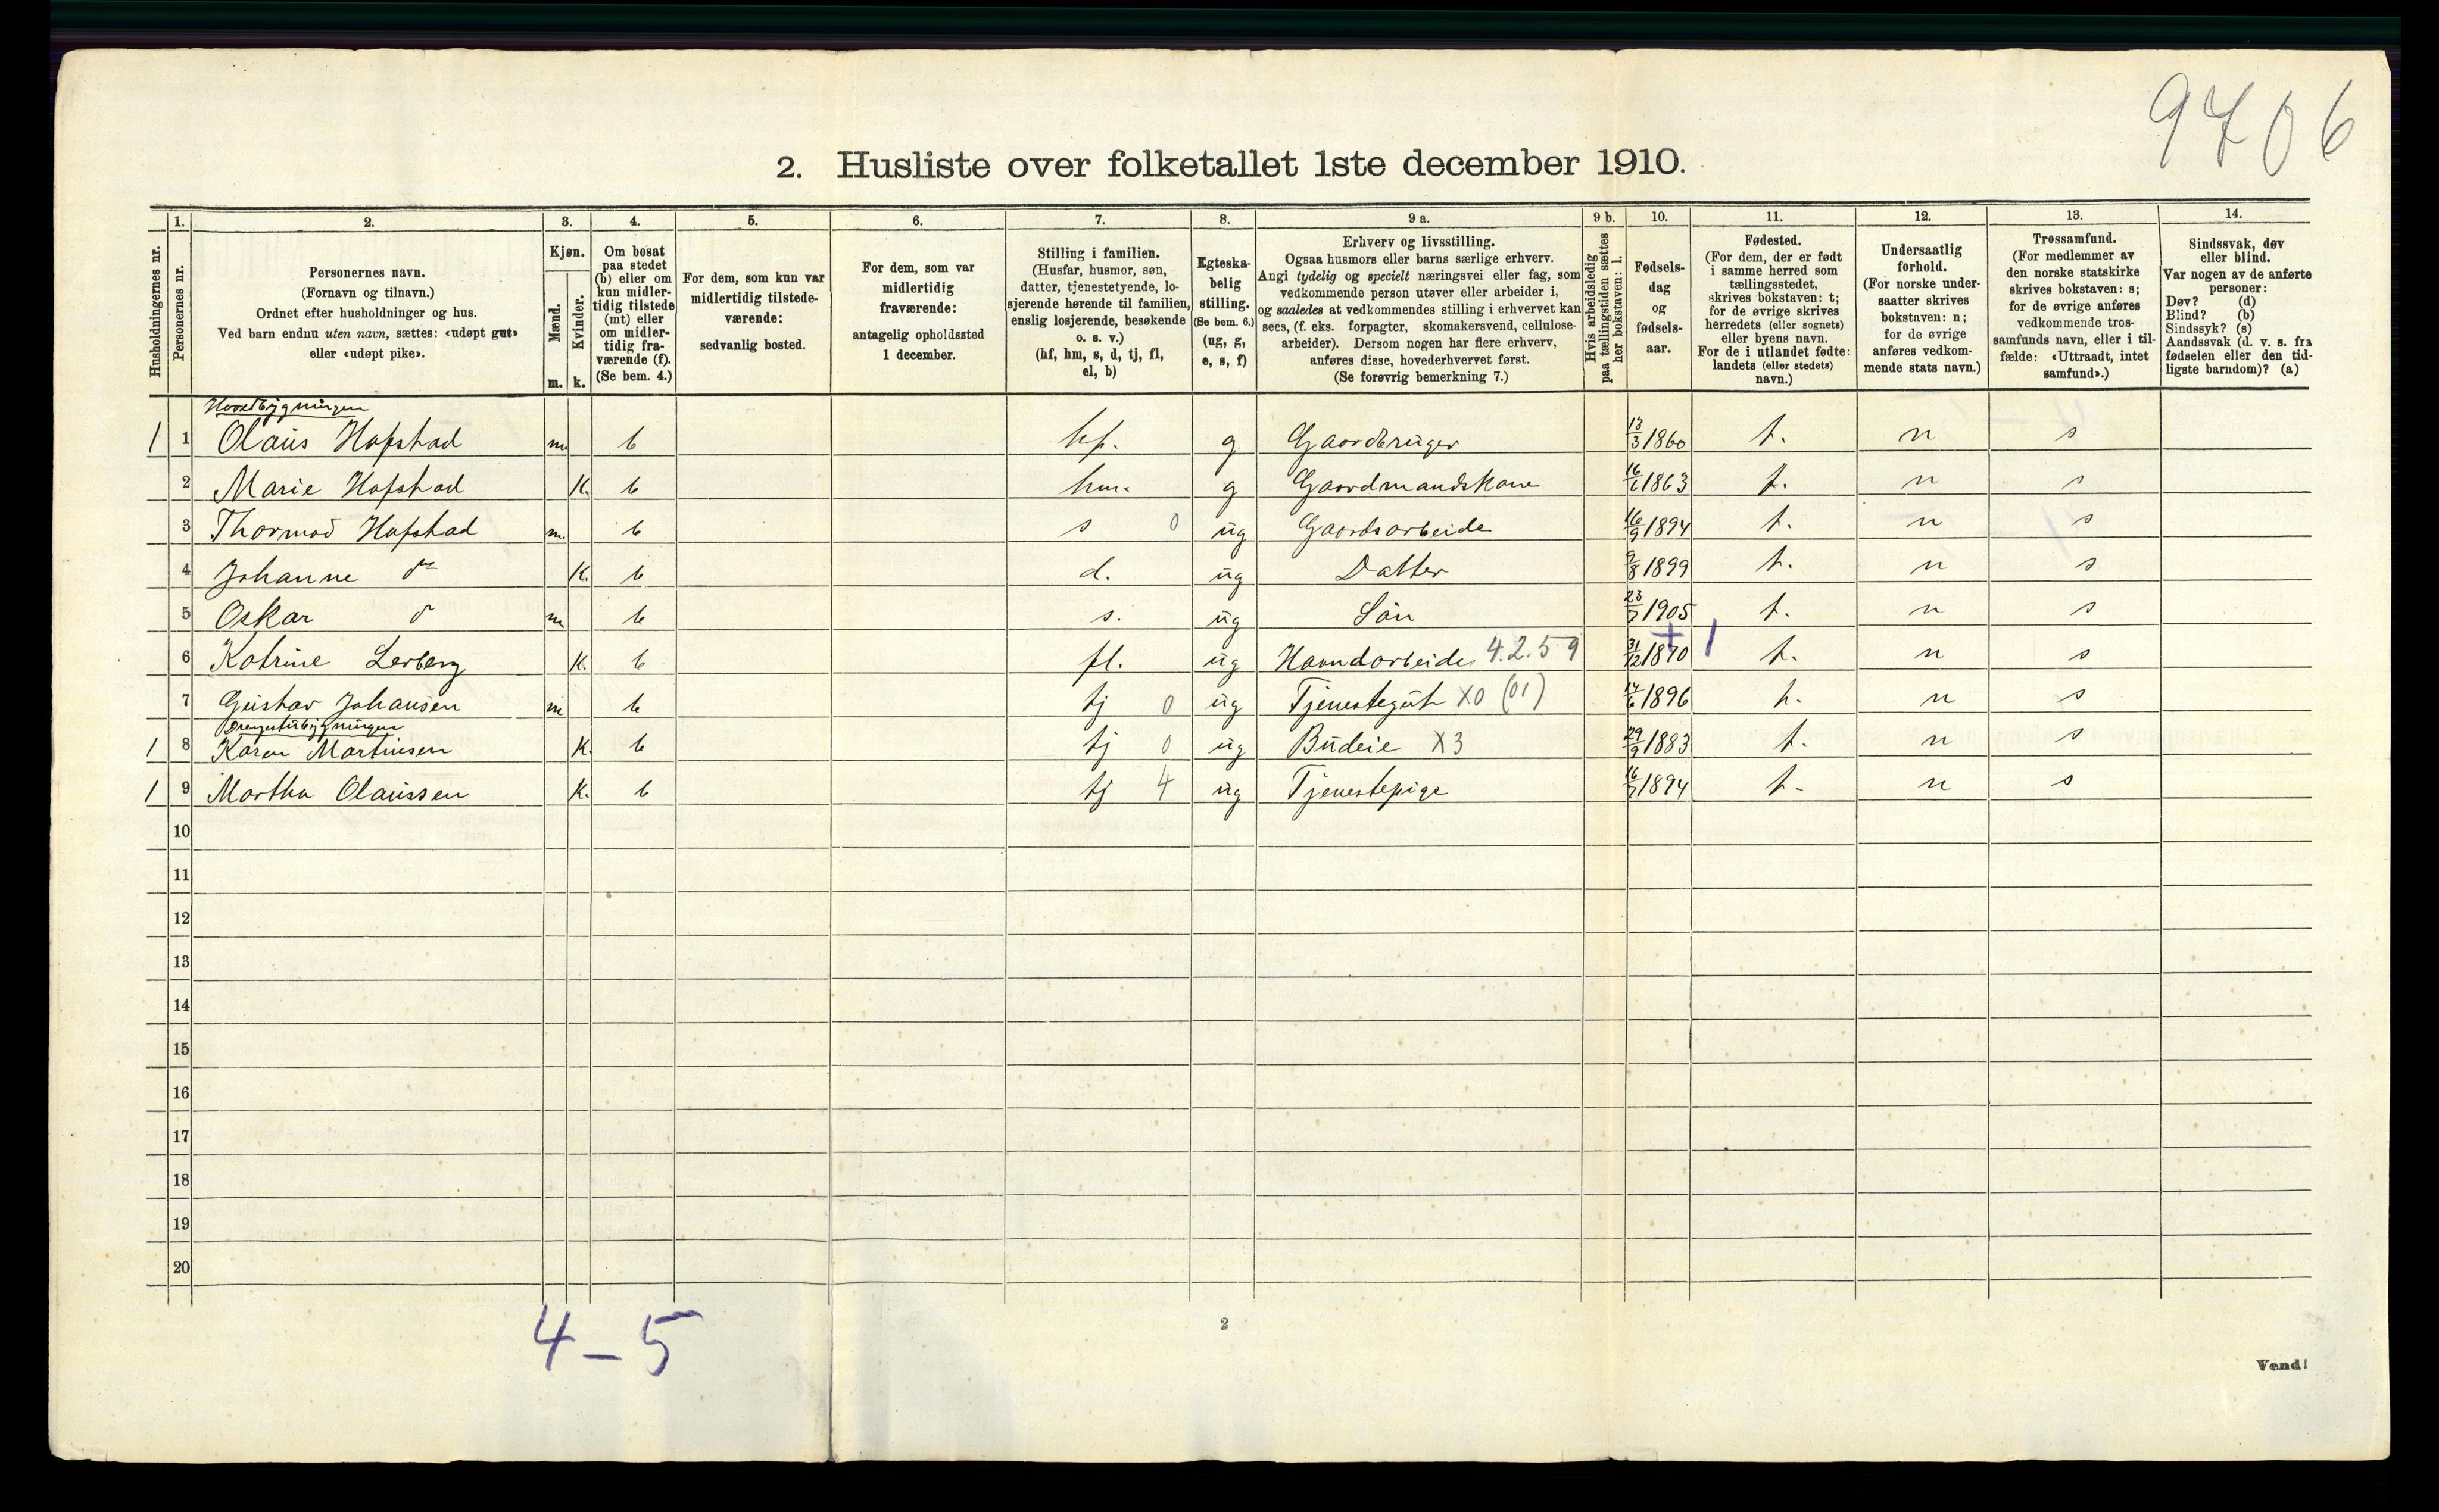 9706
2. Husliste over folketallet 1ste december 1910.
Husholdningernes nr.
1. Personernes nr.
2. Personernes navn. (Fornavn og tilnavn.) Ordnet efter husholdninger og hus. Ved barn endnu uten navn, sættes: «udøpt gut» eller «udøpt pike».
3. Kjøn. Mænd. m. Kvinder. k.
4. Om bosat paa stedet (b) eller om kun midlertidig tilstede (mt) eller om midlertidig fraværende (f). (Se bem. 4.)
5. For dem, som kun var midlertidig tilstedeværende: sedvanlig bosted.
6. For dem, som var midlertidig fraværende: antagelig opholdssted 1 december.
7. Stilling i familien. (Husfar, husmor, søn, datter, tjenestetyende, losjerende hørende til familien, enslig losjerende, besøkende o. s. v.) (hf, hm, s, d, tj, fl, el, b)
8. Egteskabelig stilling. (Se bem. 6.) (ug, g, e, s, f)
9 a. Erhverv og livsstilling. Ogsaa husmors eller barns særlige erhverv. Angi tydelig og specielt næringsvei eller fag, som vedkommende person utøver eller arbeider i, og saaledes at vedkommendes stilling i erhvervet kan sees, (f. eks. forpagter, skomakersvend, cellulosearbeider). Dersom nogen har flere erhverv, anføres disse, hovederhvervet først. (Se forøvrig bemerkning 7.)
9 b. Hvis arbeidsledig paa tællingstiden sættes her bokstaven: l.
10. Fødselsdag og fødselsaar.
11. Fødested. (For dem, der er født i samme herred som tællingsstedet, skrives bokstaven: t; for de øvrige skrives herredets (eller sognets) eller byens navn. For de i utlandet fødte: landets (eller stedets) navn.)
12. Undersaatlig forhold. (For norske undersaatter skrives bokstaven: n; for de øvrige anføres vedkommende stats navn.)
13. Trossamfund. (For medlemmer av den norske statskirke skrives bokstaven: s; for de øvrige anføres vedkommende trossamfunds navn, eller i tilfælde: «Uttraadt, intet samfund».)
14. Sindssvak, døv eller blind. Var nogen av de anførte personer: Døv? (d) Blind? (b) Sindssyk? (s) Aandssvak (d. v. s. fra fødselen eller den tidligste barndom)? (a)
Hovedbygningen
1 1 Olaus Hofstad m. b hf. g Gaardbruger 13/3 1860 t. n s
2 Marie Hofstad K. b hm. g Gaardmandskone 16/6 1863 t. n s
3 Thormod Hofstad m. b s 0 ug Gaardsarbeide 16/9 1894 t. n s
4 Johanne do K. b d. ug Datter 9/8 1899 t. n s
5 Oskar d m b s. ug Søn 23/7 1905 t. n s
6 Katrine Lerberg K. b fl. ug Haandarbeide 4.2.59 31/12 1870 + 1 t. n s
7 Gustav Johansen m b tj 0 ug Tjenestegut X0 (01) 14/6 1896 t. n s
Drengestubygningen
1 8 Karen Martinsen K. b tj 0 ug Budeie X3 29/9 1883 t. n s
1 9 Martha Olaussen K. b tj 4 ug Tjenestepige 16/7 1894 t. n s
10
11
12
13
14
15
16
17
18
19
20
4 – 5
2
Vend!